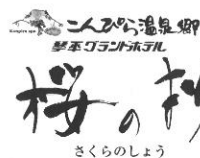 こんぴら温泉郷
琴平グランドホテル
桜の抄
さくらのしょう